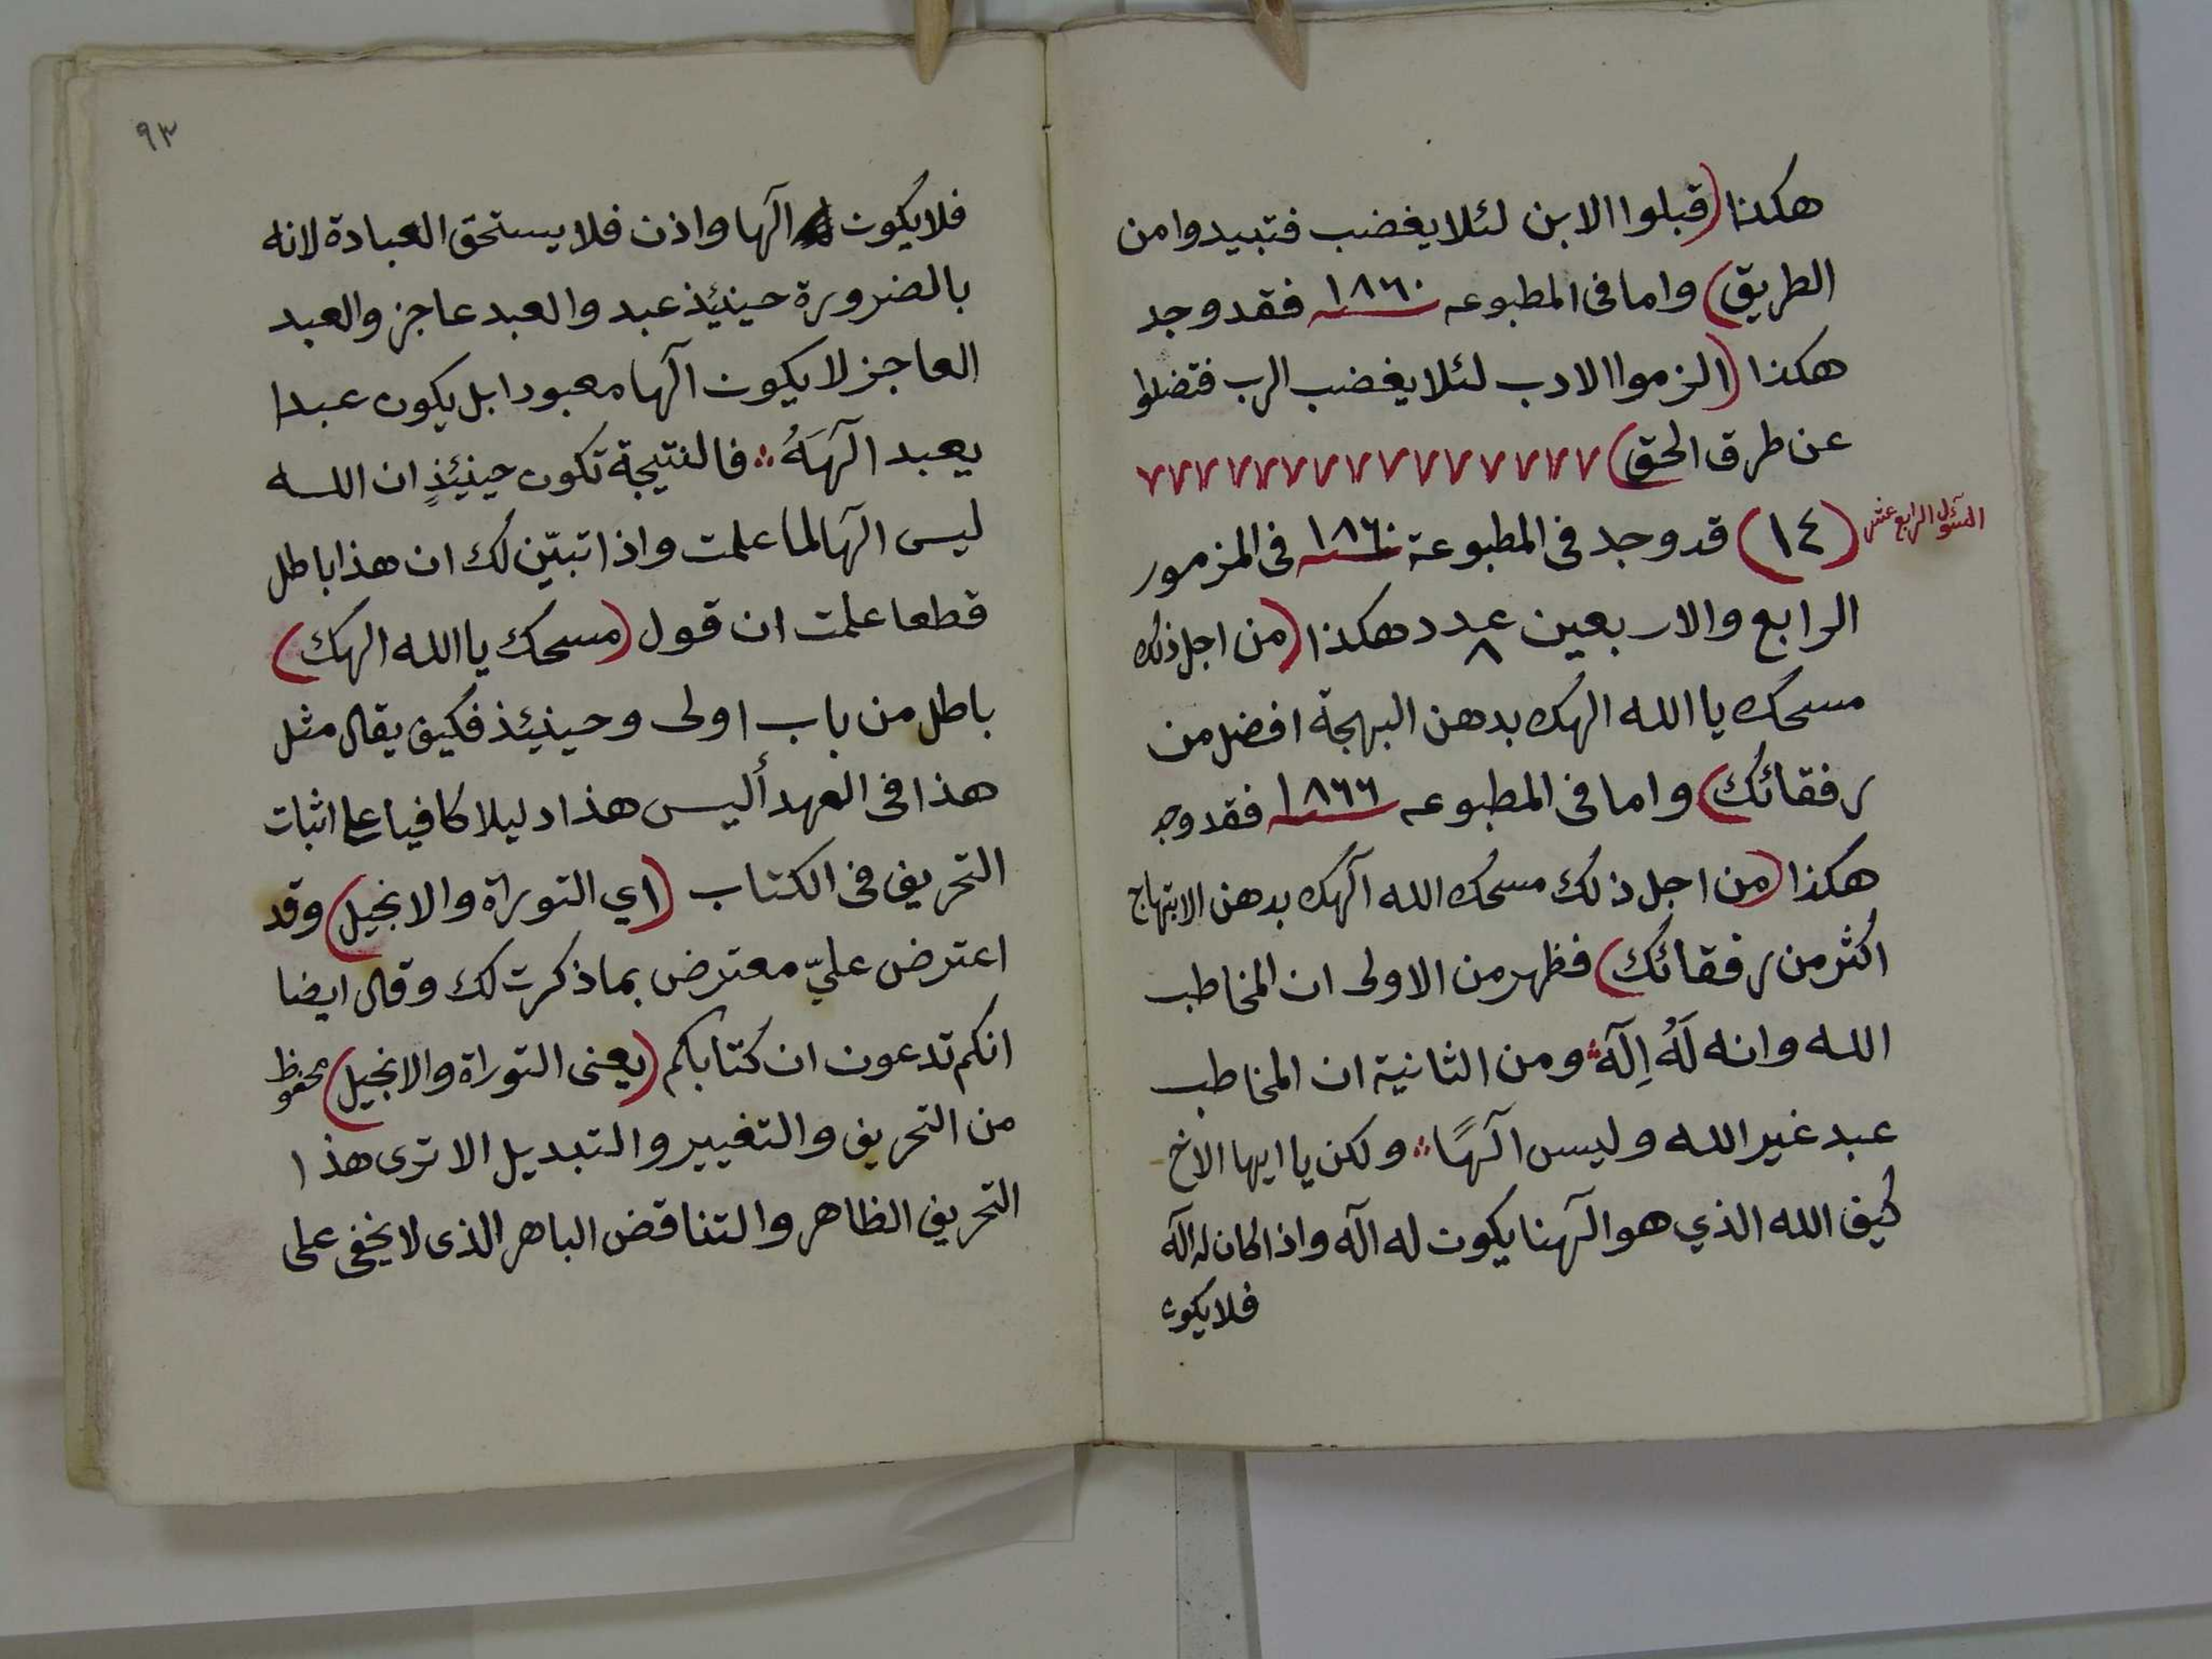 هكذا (قبلوا الابن لئلا يغضب فتبيدوا من
الطريق) واما فى المطبوعه سنه ١٨٦٠ فقد وجد
هكذا (الزموا الادب لئلا يغضب الرب فتضلوا
عن طرق الحق) ٧٧٧٧٧٧٧٧٧٧٧٧٧٧٧
السؤل الرابع عشر
(١٤) قد وجد فى المطبوعة سنه ١٨٦٠ فى المزمور
الرابع والاربعين عدد ٨ هكذا (من اجل ذلك
مسحك يا الله الهك بدهن البهجة افضل من
رفقائك) واما فى المطبوعه سنه ١٨٦٦ فقد وجد
هكذا (من اجل ذلك مسحك الله آلهك بدهن الابتهاج
اكثر من رفقائك) فظهر من الاولى ان المخاطب
الله وانه لَهُ اِلَهٌ ومن الثانية ان المخاطب
عبد غير الله وليس آلهًا ∴ ولكن يا ايها الاخ
كيف الله الذي هو آلهنا يكون له اله واذا كان له اله
فلا يكون
٩٣
فلا يكون الَها واذن فلا يستحق العبادة لانه
بالضرورة حينئذ عبد والعبد عاجز والعبد
العاجز لا يكون آلها معبودا بل يكون عبدا
يعبد آلَهَهُ ∴ فالنتيجة تكون حينئذٍ ان الله
ليس الَها لما علمت واذا تبيّن لك ان هذا باطل
قطعا علمت ان قول (مسحك يا الله الهك)
باطل من باب اولى وحينئذ فكيف يقال مثل
هذا فى العهد أليس هذا دليلا كافيا على اثبات
التحريف فى الكتاب (اي التوراة والانجيل) وقد
اعترض عليّ معترض بما ذكرت لك وقال ايضا
انكم تدعون ان كتابكم (يعنى التوراة والانجيل) محفوظ
من التحريف والتغيير والتبديل الا ترى هذا
التحريف الظاهر والتناقض الباهر الذى لا يخفى على